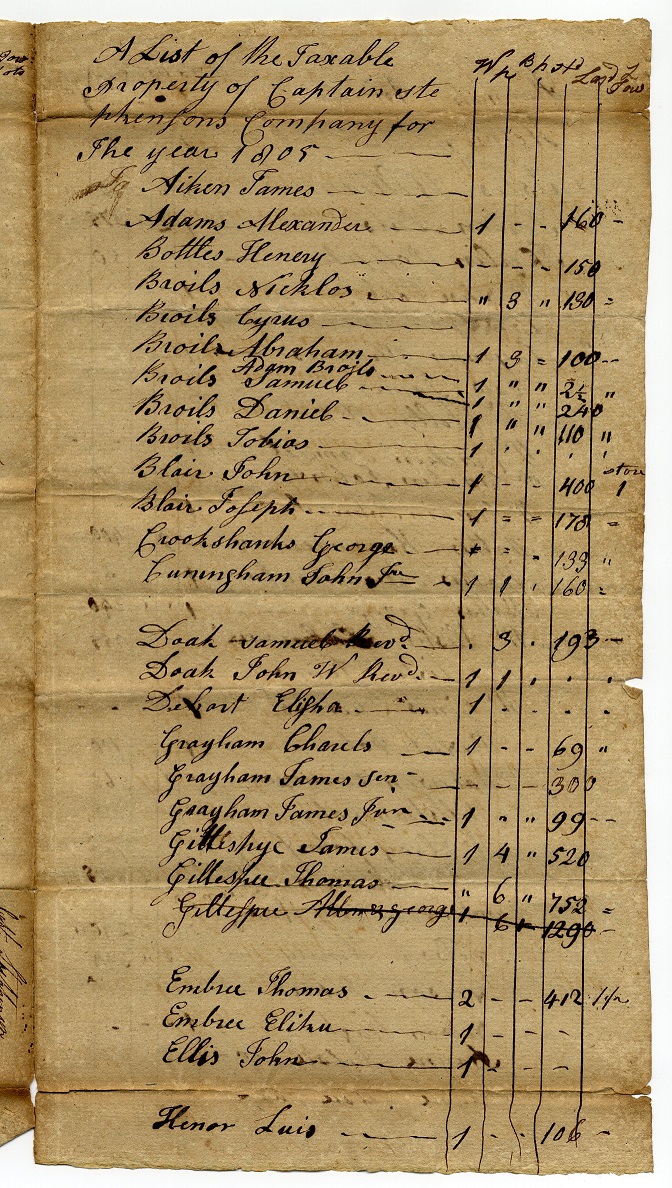 A List of the Taxable W P B P S H Land Tow
Property of Captain Ste
phensons Company for
The year 1805
Aiken James
Adams Alexander 1 - - 160 -
Bottles Henery - - - 150
Broils Nicklos " 3 " 130 =
Broils Cyrus
Broils Abraham 1 3 = 100 --
Adam Broils
Broils Samuel 1 " " 2½ "
Broils Daniel 1 " " 240
Broils Tobias 1 " " 110 "
Blair John 1 - - 400 1
stor
Blair Joseph 1 = = 178 =
Crookshanks George - - - 133 "
Cuningham John Jur 1 1 ' 160 =
Doak Samuel Revd . 3 . 193 -
Doak John W Revd 1 1 . . .
Dehart Elisha 1 - . . .
Grayham Charels 1 - - 69 "
Grayham James Sen - - - 300
Grayham James Jun 1 " " 99 --
Gillespye James 1 4 " 520
Gillespie Thomas " 6 " 752 =
Gillespie George 1 6 1290
Embree Thomas 2 - - 412
Embree Elihu 1 - - -
Ellis John 1 - - -
Henor Luis 1 - - 106 -